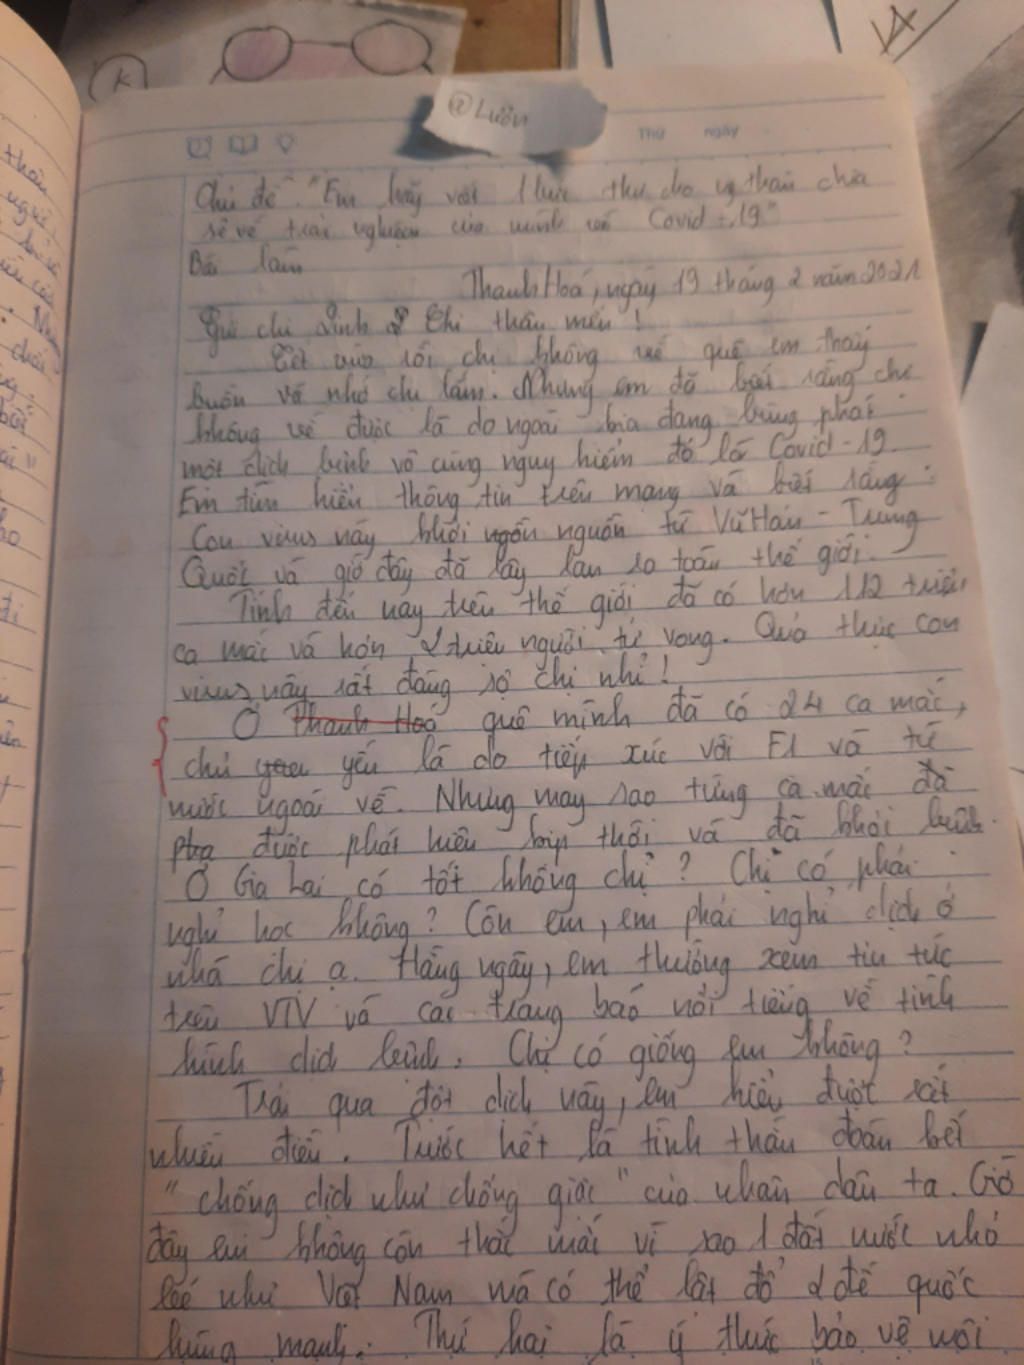 @Luôn
Thứ ngày
Chủ đề: "Em hãy viết 1 bức thư cho ng thân chia
sẻ về trải nghiệm của mình về Covid-19"
Bài làm
Thanh Hoá, ngày 19 tháng 2 năm 2021
Gửi chị Linh Chi thân mến!
Tết vừa rồi chị không về quê em thấy
buồn và nhớ chị lắm. Nhưng em đã biết rằng chị
không về được là do ngoài kia đang bùng phát
một dịch bệnh vô cùng nguy hiểm đó là Covid-19.
Em tìm hiểu thông tin trên mạng và biết rằng:
Con virus này khởi nguồn từ Vũ Hán - Trung
Quốc và giờ đây đã lây lan ra toàn thế giới.
Tính đến nay trên thế giới đã có hơn 112 triệu
ca mắc và hơn 2 triệu người tử vong. Quả thực con
virus này rất đáng sợ chị nhỉ!
Ở Thanh Hoá quê mình đã có 24 ca mắc,
chủ yếu là do tiếp xúc với F1 và từ
nước ngoài về. Nhưng may sao từng ca mắc đã
được phát hiện kịp thời và đã khỏi bệnh.
Ở Gia Lai có tốt không chị? Chị có phải
nghỉ học không? Còn em, em phải nghỉ dịch ở
nhà chị ạ. Hằng ngày, em thường xem tin tức
trên VTV và các trang báo nổi tiếng về tình
hình dịch bệnh. Chị có giống em không?
Trải qua đợt dịch này, em hiểu được rất
nhiều điều. Trước hết là tinh thần đoàn kết
"chống dịch như chống giặc" của nhân dân ta. Giờ
đây em không còn thắc mắc vì sao 1 đất nước nhỏ
bé như Việt Nam mà có thể lật đổ 2 đế quốc
hùng mạnh. Thứ hai là ý thức bảo vệ môi